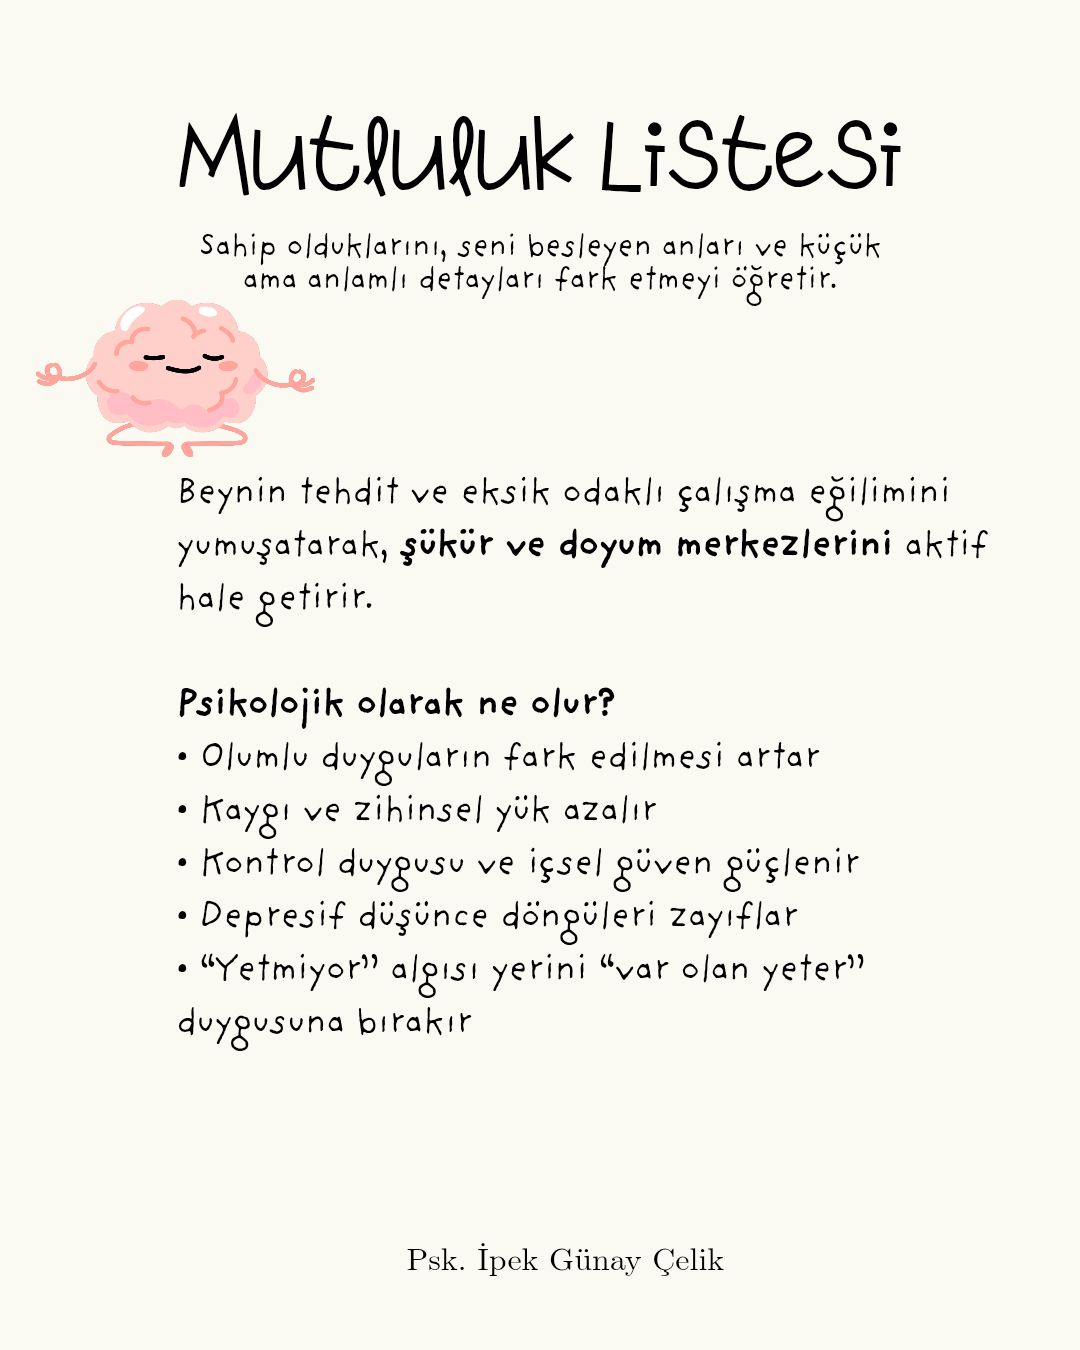 Mutluluk Listesi
Sahip olduklarını, seni besleyen anları ve küçük
ama anlamlı detayları fark etmeyi öğretir.
Beynin tehdit ve eksik odaklı çalışma eğilimini
yumuşatarak, şükür ve doyum merkezlerini aktif
hale getirir.
Psikolojik olarak ne olur?
• Olumlu duyguların fark edilmesi artar
• Kaygı ve zihinsel yük azalır
• Kontrol duygusu ve içsel güven güçlenir
• Depresif düşünce döngüleri zayıflar
• “Yetmiyor” algısı yerini “var olan yeter”
duygusuna bırakır
Psk. İpek Günay Çelik